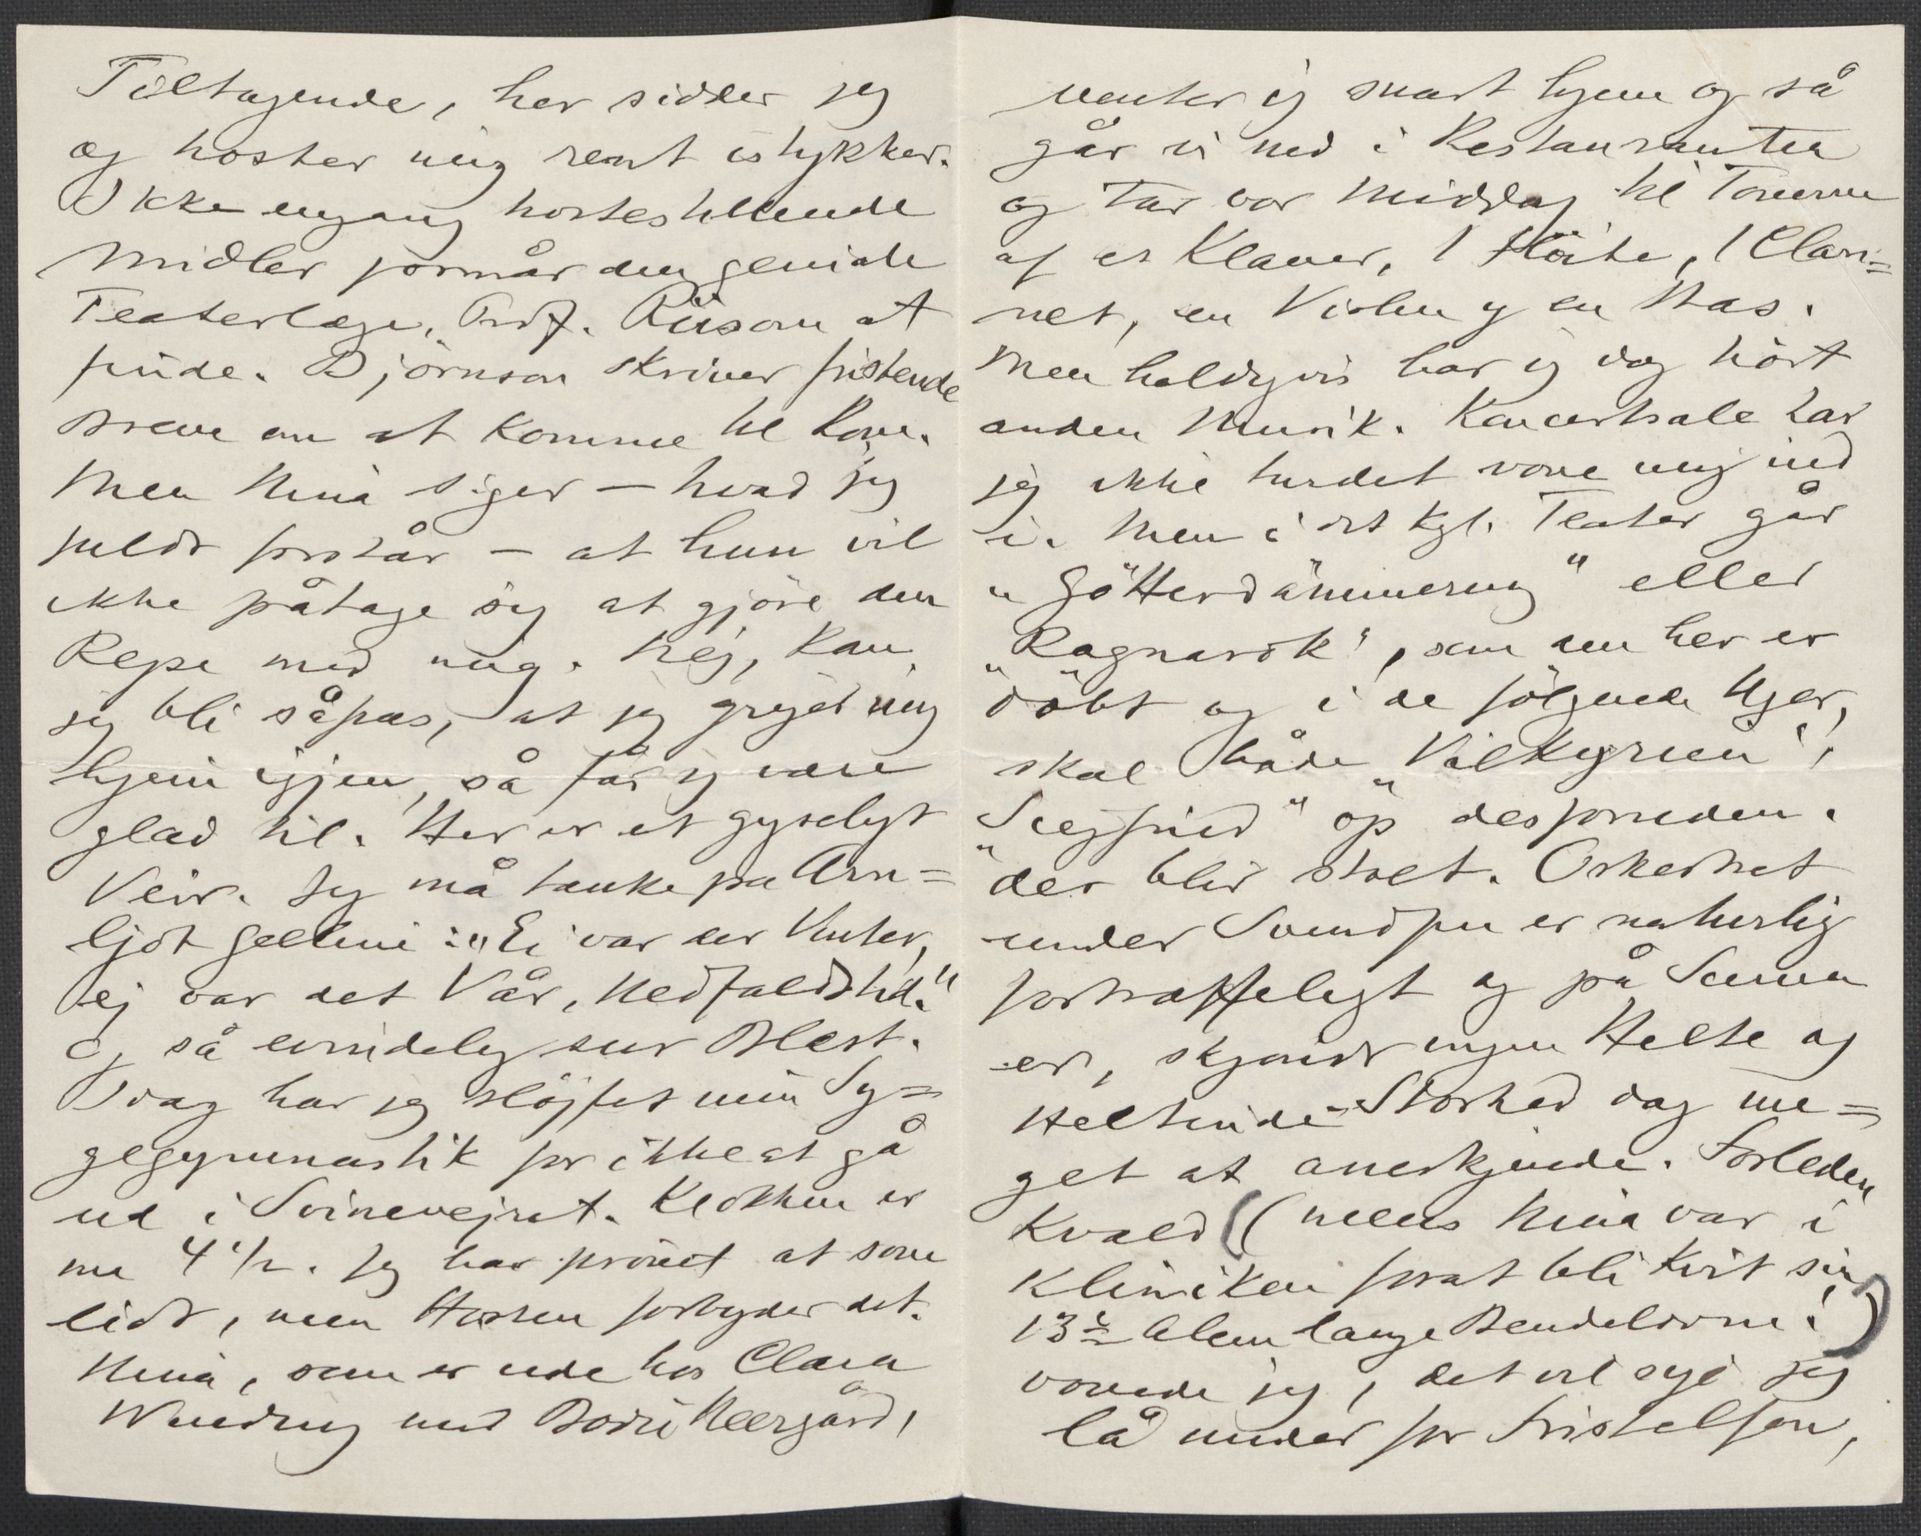 Tiltagende, her sidder jeg
og hoster mig rent istykker.
Ikke engang hostestillende
Midler formår den geniale
Teaterlæge, Prof. Riisom at
finde. Bjørnson skriver fristende
Breve om at komme til Rom.
Men Nina siger – hvad jeg
fuldt forstår – at hun vil
ikke påtage sig at gjöre den
Rejse med mig. Nej, kan
jeg bli såpas, at jeg grejer mig
hjem igjen, så får jeg være
glad til. Her er et gyseligt
Veir. Jeg må tænke på Arn=
ljot Gelline: "Ei var der Vinter,
ej var det Vår, Nedfaldstid."
og så evindelig sur Blæst.
Idag har jeg slöjfet min Sy=
gegymnastik for ikke at gå
ud i Svinevejret. Klokken er
nu 4 1/2. Jeg har prövet at sove
lidt, men Hosten forbyder det.
Nina, som er ude hos Clara
Wendring med Bodil Neergård,
venter jeg snart hjem og så
går vi ned i Restauranten
og tar vor Middag til Tonerne
af et Klaver, 1 Flöite, 1 Clari=
net, en Violin og en Bas.
Men heldigvis har jeg dog hört
anden Musik. Koncertsale har
jeg ikke turdet vove mig ind
i. Men i det kgl. Teater går
"Götterdämmerung" eller
"Ragnarok", som den her er
döbt og i de fölgende Uger,
skal både "Valkyrien",
"Siegfried" op desforuden.
der blir stolt. Orkestret
under Svendsen er naturlig
fortræffeligt og på Scenen
er, skjøndt ingen Helte og
Heltinde-Storhed dog me=
get at anerkjende. Forleden
Kvæld (mens Nina var i
Kliniken forat bli kvit sin
13 1/2 Alen lange Bendelorm!)
vovede jeg, det vil sige jeg
lå under for Fristelsen,